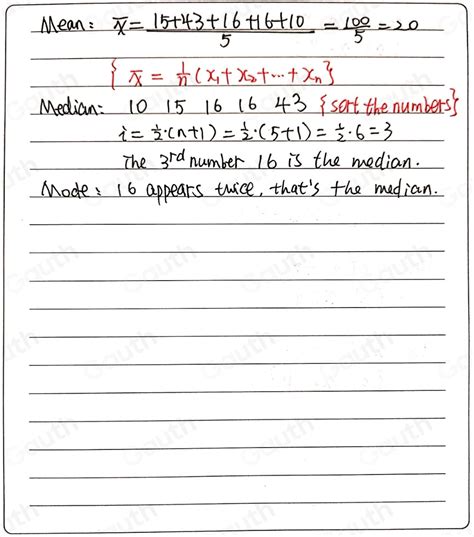 Mean: x̄ = 15+43+16+16+10 / 5 = 100/5 = 20
{ x̄ = 1/n (x₁+x₂+⋯+xₙ}
Median: 10 15 16 16 43 {sort the numbers}
i = ½·(n+1) = ½·(5+1) = ½·6 = 3
The 3rd number 16 is the median.
Mode: 16 appears twice, that's the median.
Gauth